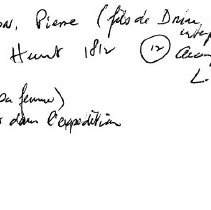 ON, Pierre (fils de Drion,
Hunt 1812 (12)
L.
sa femme)
dans l'expédition